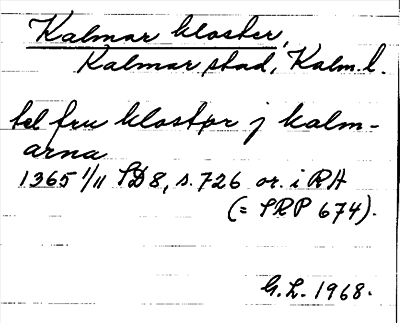 Kalmar kloster,
Kalmar stad, Kalm.l.
tel fru klostør j kalm-
arna
1365 1/11 SD8, s.726 or. i RA
(= SRP 674).
G.L. 1968.